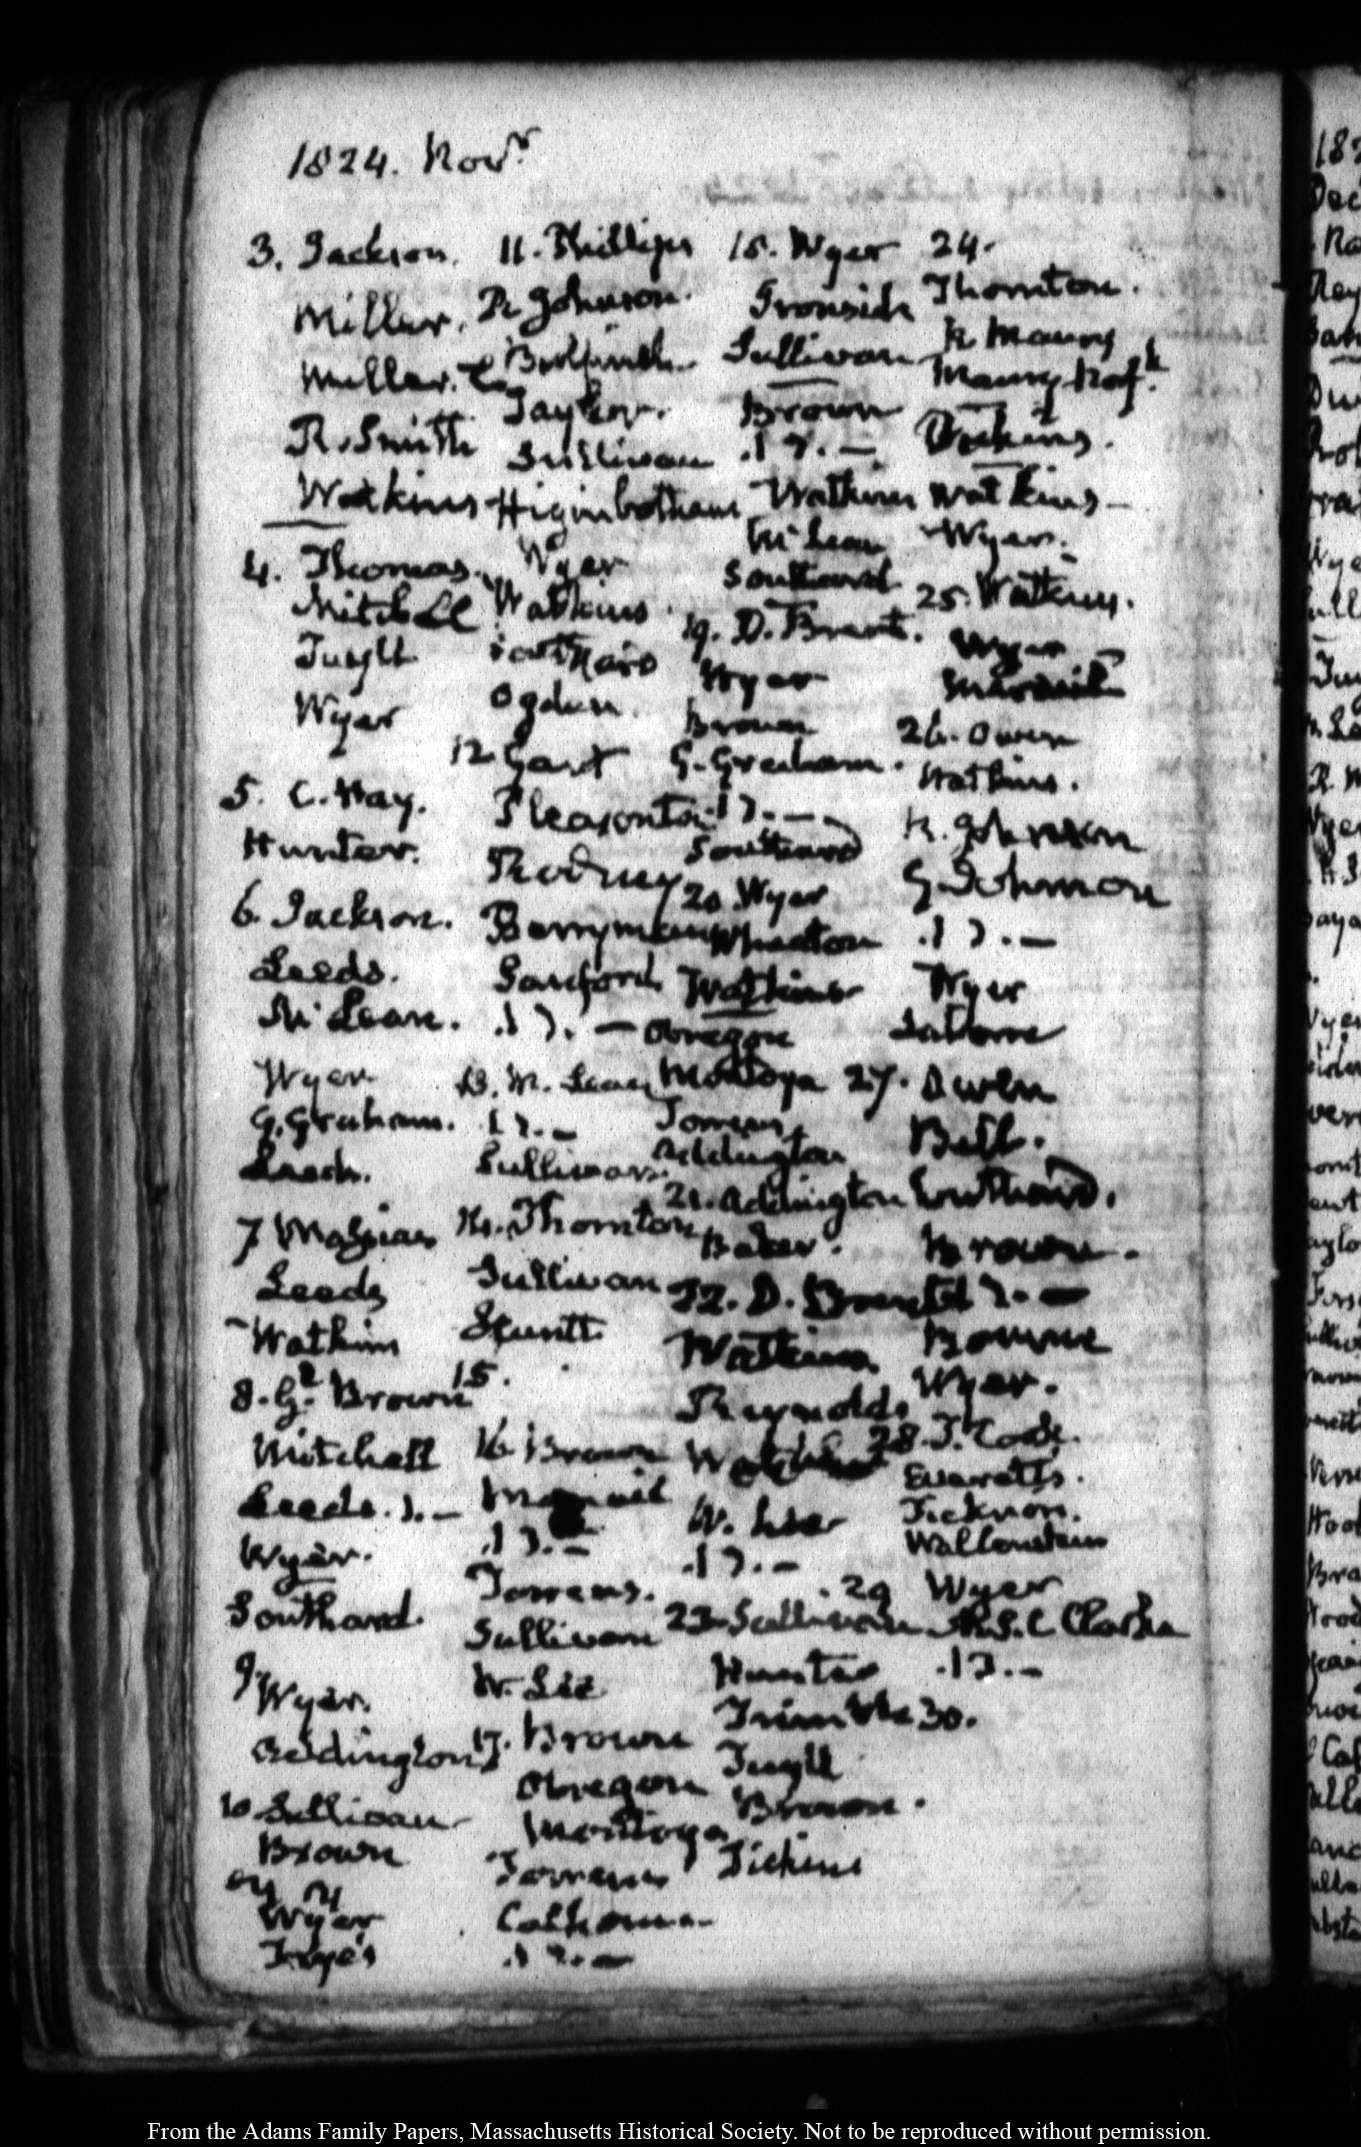 1824. Novr.
3. Jackson.
Miller.
Miller.
R. Smith
Watkins
4. Thomas.
Mitchell
Tuyll
Wyer
5. C. Hay.
Hunter.
6. Jackson.
Leeds.
McLean.
Wyer
G. Graham.
Leeds.
7
Leeds
Watkins
8. G. Brown
Mitchell
Leeds. ).—
Wyer.
Southard.
9. Wyer.
Addington
10 Sullivan
Brown
Wyer
Frye's
11. Phillips
R. Johnson.
Taylor.
Sullivan
Higinbotham
Wyer
Watkins
Southard
Ogden.
12. Gart
Pleasonton
Rodney
Berryman
Sanford
.1 ). —
13. M. Lean
1 ).—
Sullivan.
14. Thornton
Sullivan
15.
16. Brown
.1 ).—
Torrens.
Sullivan
W. Lee
17. Brown
Obregon
Montoya
Torrens
Calhoun
.1 ).—
18. Wyer
Ironside
Sullivan
Brown
.1 ).—
Watkins
McLean
Southard
19. D. Brent.
Wyer
Brown
G. Graham.
.1 ).—
Southard
20 Wyer
Wheaton
Watkins
Obregon
Montoya
Torrens
Addington
21. Addington
Baker.
22. D. Brent
Watkins
Reynolds
W. Lee
.1 ).—
23. Sullivan
Hunter
Trimble
Tuyll
Brown.
Dickins
24.
Thornton.
Maury
Maury
Dickins.
Watkins—
Wyer.
25. Watkins.
Wyer
26. Owen
Watkins.
R. Johnson
G. Johnson
.1 ).—
Wyer
27. Owen
Bell.
Southard.
Brown.
1 ).—
Bourne
Wyer.
28. T. Cook.
Everett.
Ticknor.
Wallenstein
29 Wyer
R.S.C Clarke
.1 ).—
30.
From the Adams Family Papers, Massachusetts Historical Society. Not to be reproduced without permission.